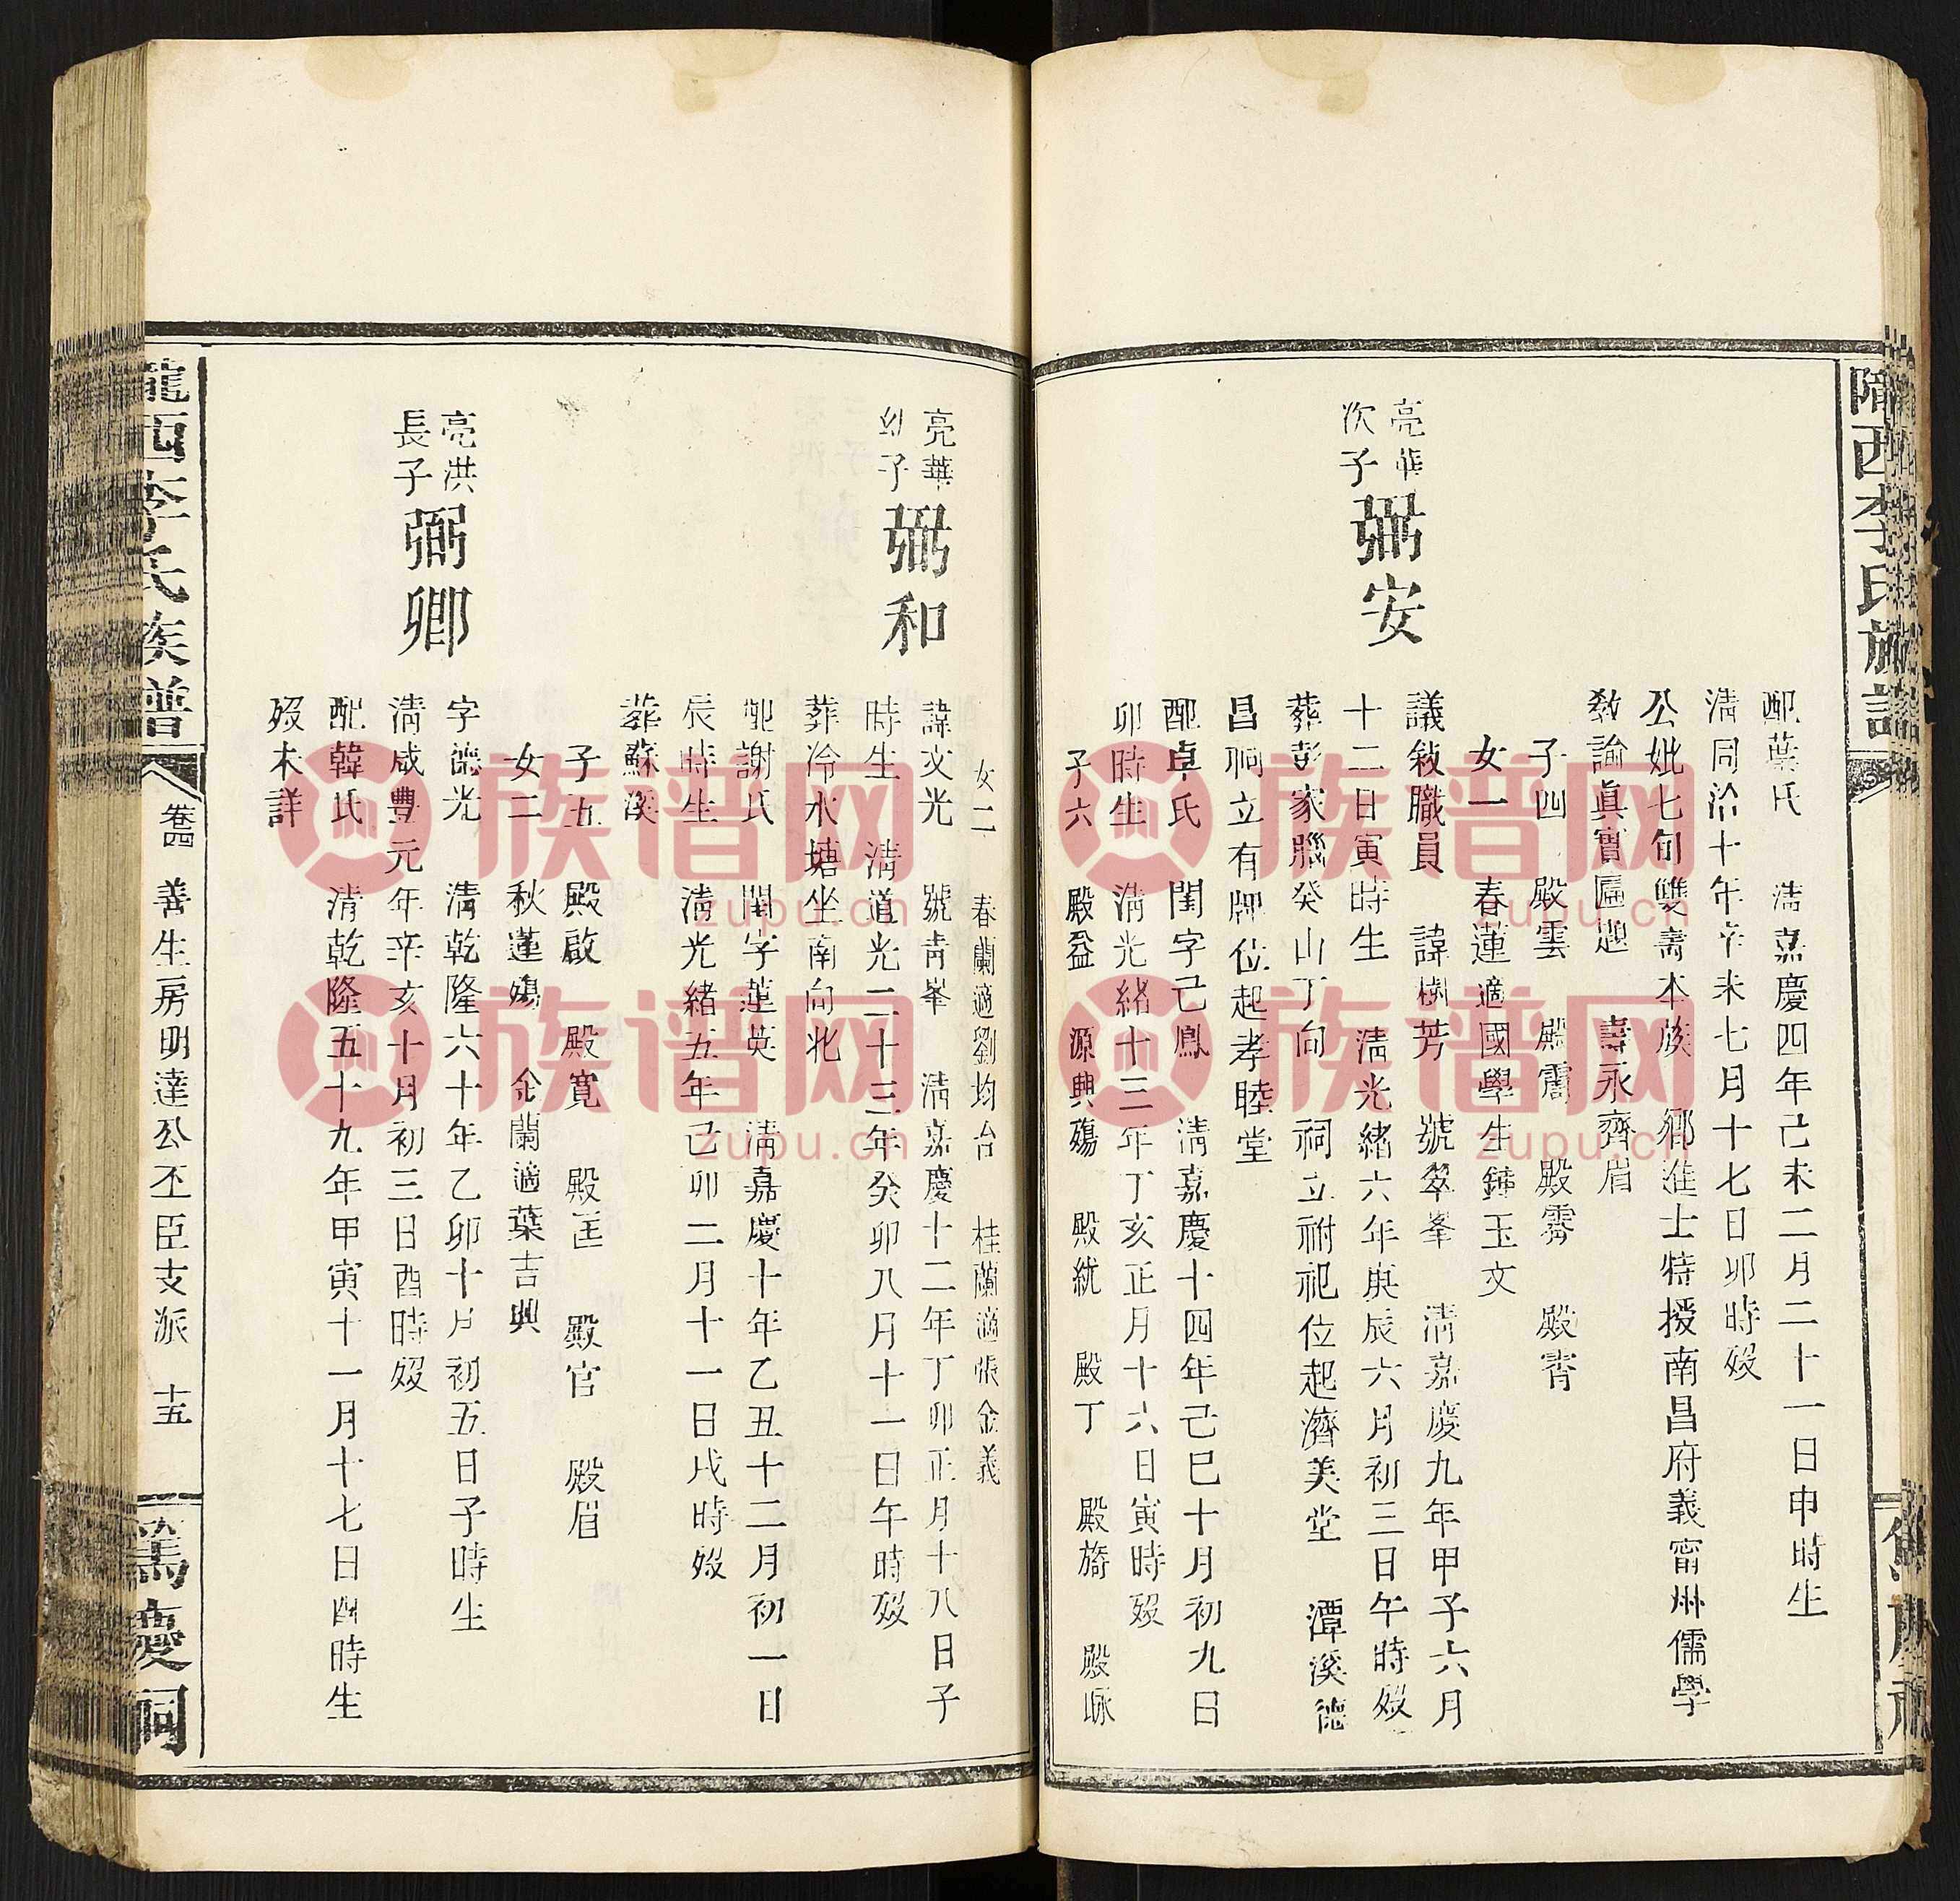 隴西李氏族譜
配葉氏　清嘉慶四年己未二月二十一日申時生
清同治十年辛未七月十七日卯時歿
公妣七旬雙壽本族　鄉進士特授南昌府義甯州儒學
敎諭眞實匾題　壽永齊眉
子四　殿雲　殿霱　殿霽　殿霄
女一　春蓮適國學生鍾玉文
亮華
次子
弼安
議敘職員　諱樹芳　號翠峯　清嘉慶九年甲子六月
十二日寅時生　清光緒六年庚辰六月初三日午時歿
葬彭家腦癸山丁向　祠立祔祀位起濟美堂　潭溪德
昌祠立有牌位起孝睦堂
配卓氏　閨字己鳳　清嘉慶十四年己巳十月初九日
卯時生　清光緒十三年丁亥正月十六日寅時歿
子六　殿盆　源興殤　殿統　殿丁　殿旖　殿脉
女二　春蘭適劉均台　桂蘭適張金義
亮華
幼子
弼和
諱文光　號青峯　清嘉慶十二年丁卯正月十八日子
時生　清道光二十三年癸卯八月十一日午時歿
葬冷水塘坐南向北
配謝氏　閨字蓮英　清嘉慶十年乙丑十二月初一日
辰時生　清光緒五年己卯二月十一日戌時歿
葬蘇溪
子五　殿啟　殿寬　殿匡　殿官　殿眉
女二　秋蓮殤　金蘭適葉吉興
亮洪
長子
弼卿
字德光　清乾隆六十年乙卯十月初五日子時生
清咸豐元年辛亥十月初三日酉時歿
配韓氏　清乾隆五十九年甲寅十一月十七日酉時生
歿未詳
隴西李氏族譜
卷四　善生房明達公丕臣支派　十五
篤慶祠
族谱网
zupu.cn
族谱网
zupu.cn
族谱网
zupu.cn
族谱网
zupu.cn